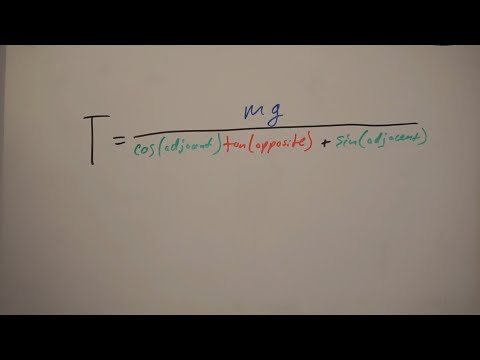 T = mg
cos(adjacent)tan(opposite) + sin(adjacent)